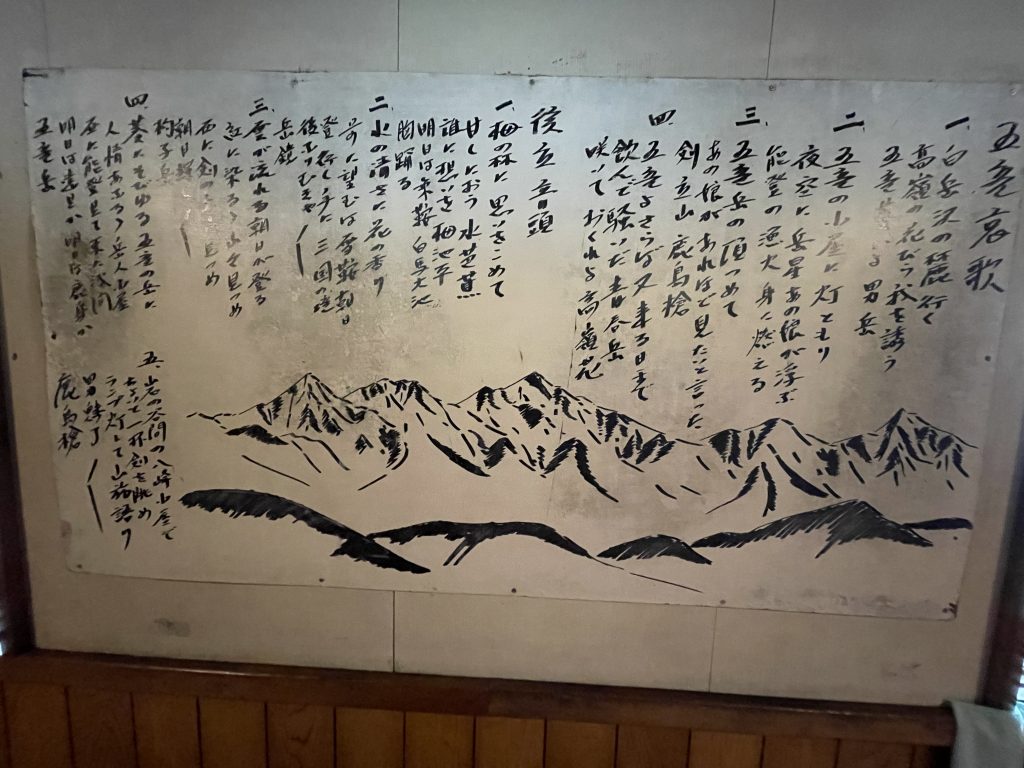 五竜哀歌
一、白岳沢の麓行く
高嶺の花びら我を誘う
五竜 男岳
二、五竜の小屋に灯ともり
夜空に岳星あの娘が浮ぶ
能登の漁火身に燃える
三、五竜岳の頂つめて
あの娘があれほど見たいと言った
剣立山鹿島槍
四、五竜よさらば又来る日まで
飲んで騒いだ青春岳
咲いておくれよ高嶺花
後立音頭
一、栂の林に思いをこめて
甘くにおう水芭蕉
誰に想いを栂池平
明日は乗鞍白馬大池
胸踊る
二、水の清さに花の香り
前に望むは 乗鞍朝日
登り行く手に三国の境
後ふりむきゃ
岳鎗
三、雲が流れる朝日が登る
逆に染まる山々見つめ
西に剣の 見つめ
朝日
杓子岳
四、葵にそびゆる五竜の岳に
人情あふるる岳人小屋
西に能登見て東に浅間
明日は遠見か明日は鹿島か
五竜岳
五、岩の谷間の八峰小屋で
ちょいと一杯剣を眺め
ランプ灯して山荷語り
男
鹿島槍